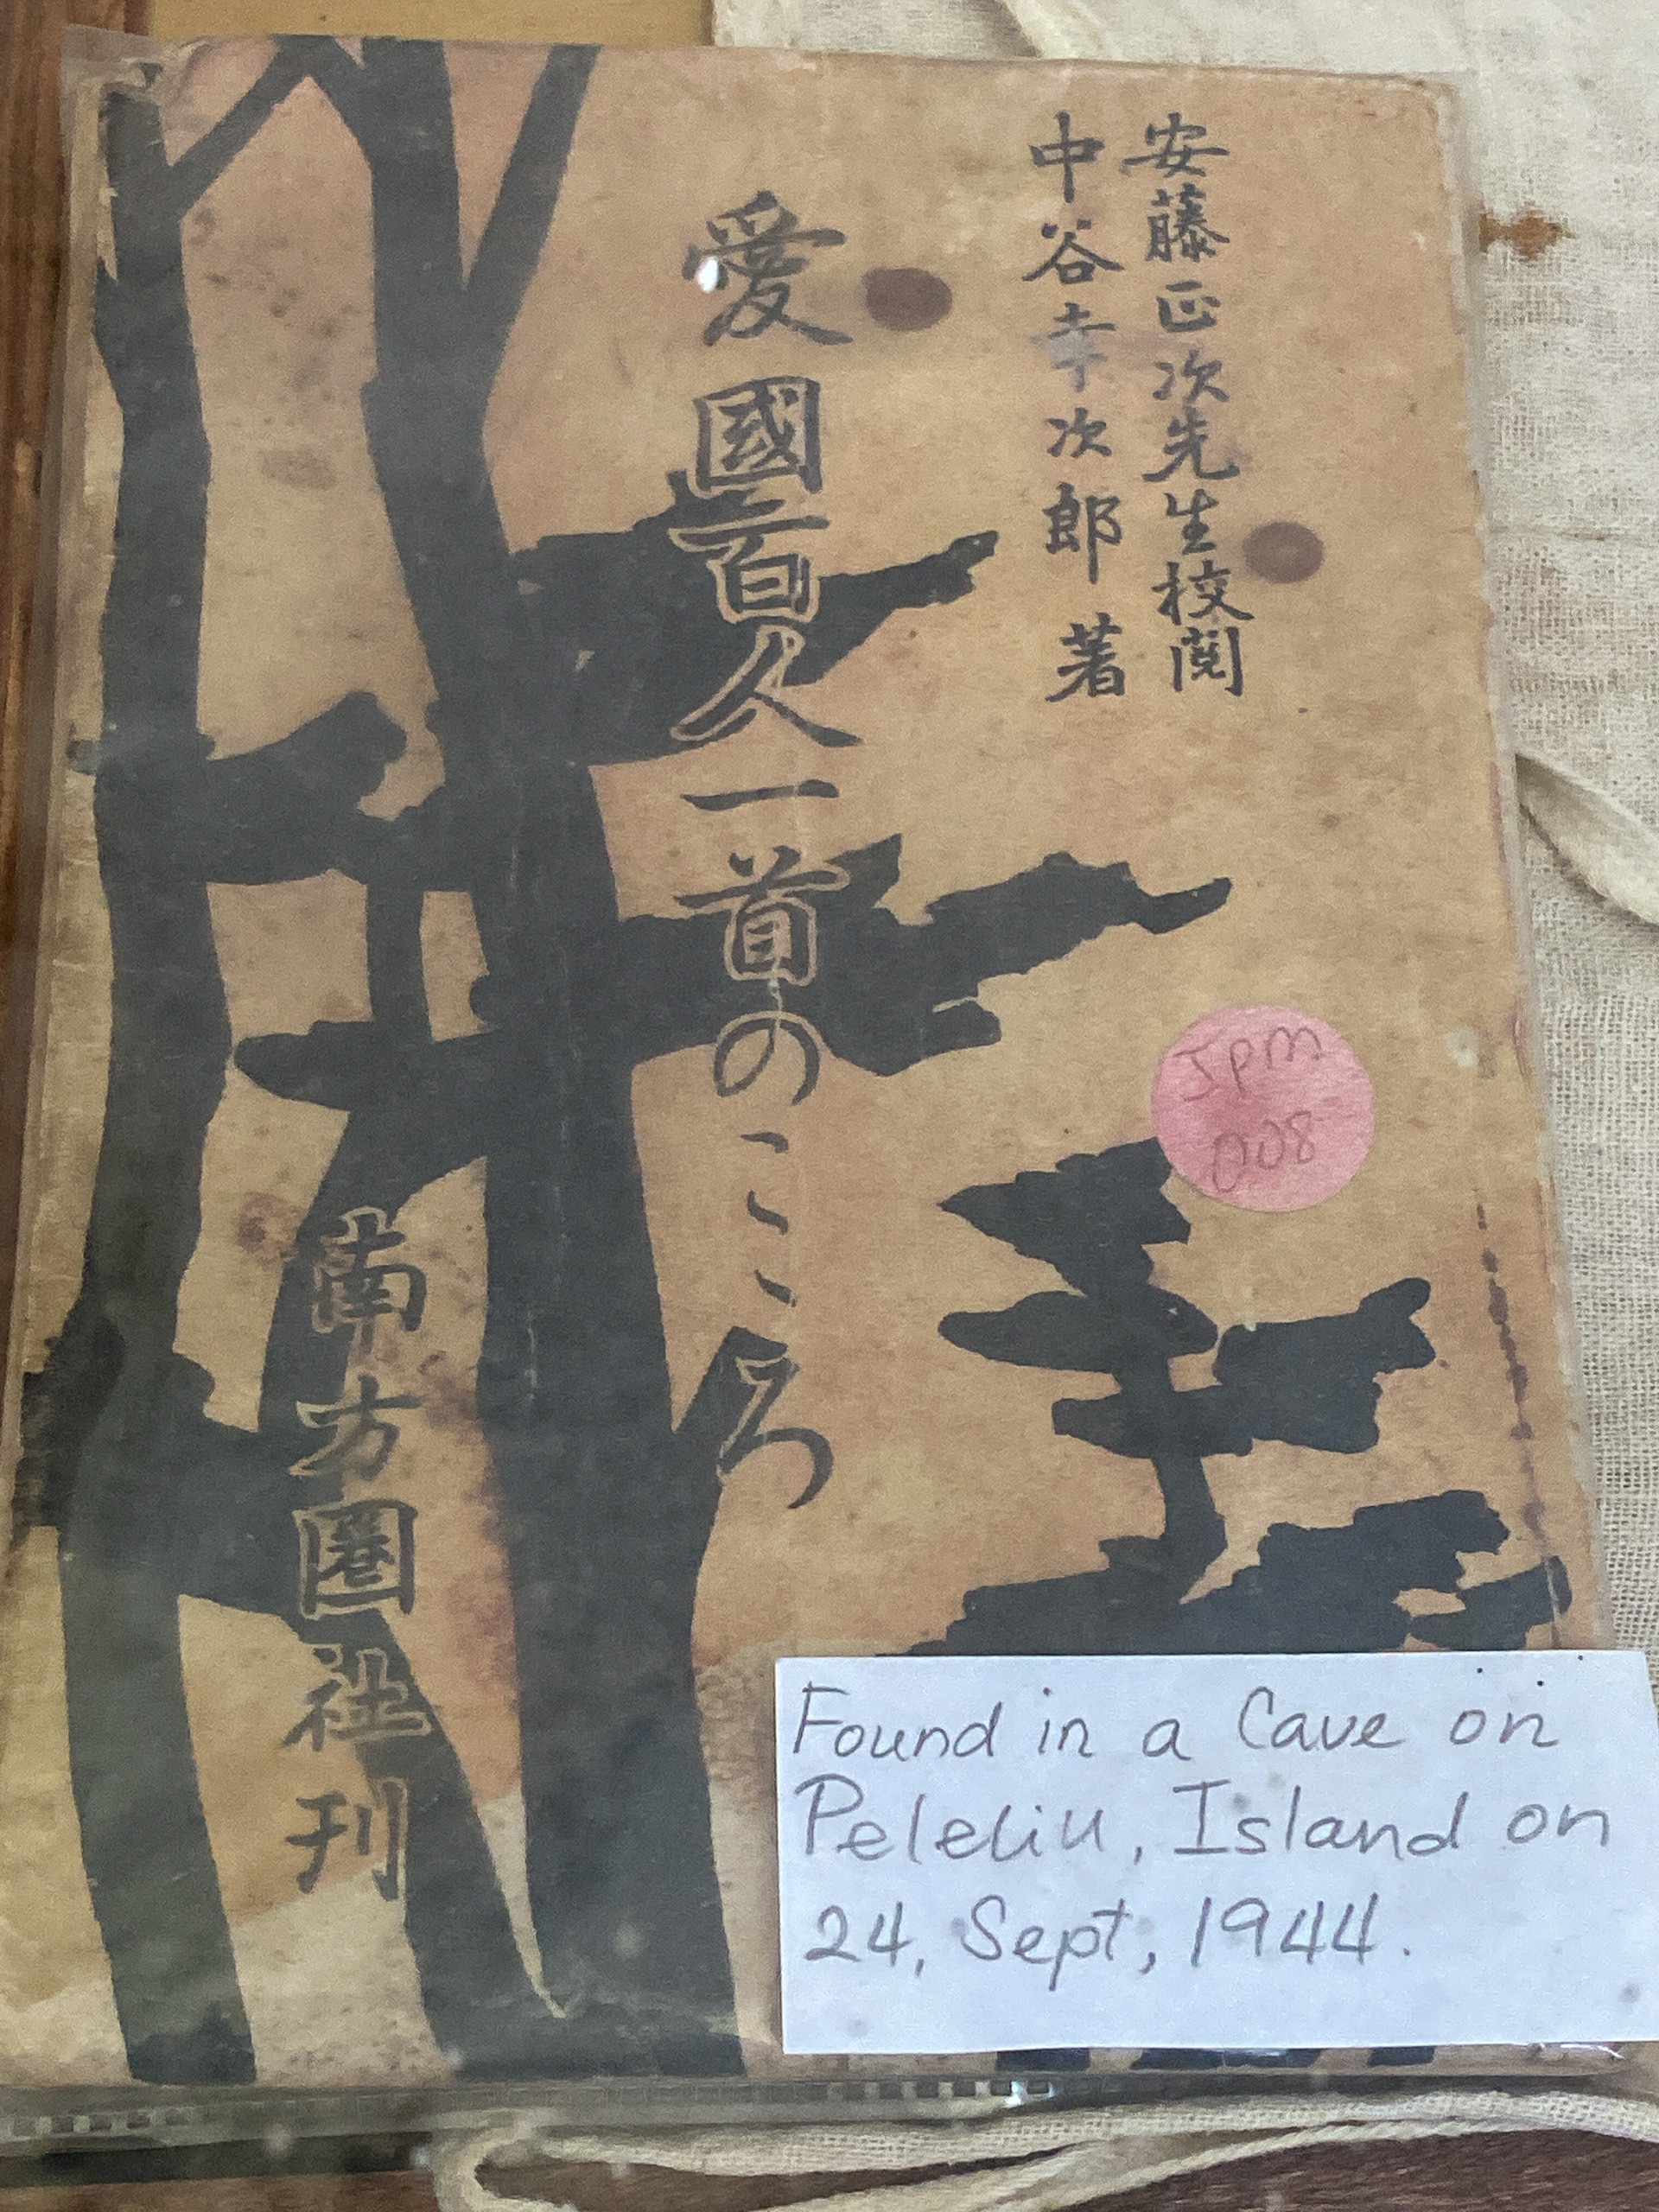 安藤正次先生校閲
中谷幸次郎著
愛國百人一首のこころ
南方圏社刊
JPM
008
Found in a Cave on
Peleliu, Island on
24, Sept, 1944.